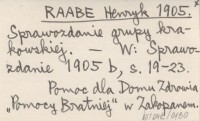 RAABE Henryk 1905.
Sprawozdanie grupy kra-
kowskiej. — W: Sprawo-
zdanie 1905 b, s. 19-23.
Pomoc dla Domu Zdrowia
„Pomocy Bratniej" w Zakopanem.